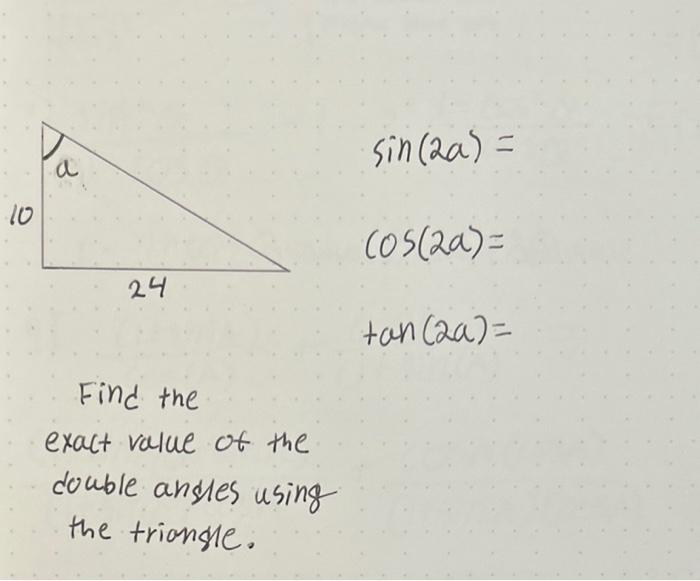 a
10
24
sin(2a) =
cos(2a)=
tan(2a)=
Find the
exact value of the
double angles using
the triangle.